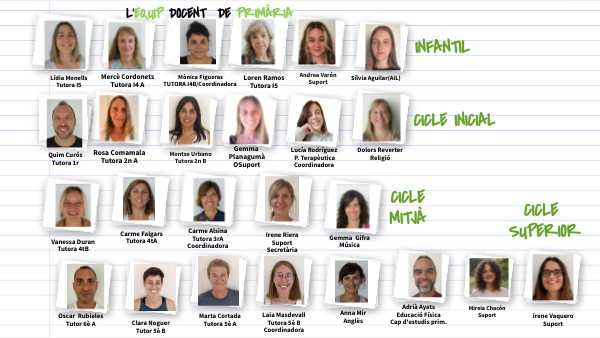 L'EQUIP DOCENT DE PRIMÀRIA
INFANTIL
Lídia Monells
Tutora I5
Mercè Cordonets
Tutora I4 A
Mònica Figueras
TUTORA I4B/Coordinadora
Loren Ramos
Tutora I5
Andrea Varón
Suport
Sílvia Aguilar(AiL)
CICLE INICIAL
Quim Curós
Tutora 1r
Rosa Comamala
Tutora 2n A
Montse Urbano
Tutora 2n B
Gemma
Planagumà
OSuport
Lucía Rodríguez
P. Terapèutica
Coordinadora
Dolors Reverter
Religió
CICLE
MITJÀ
Vanessa Duran
Tutora 4tB
Carme Falgars
Tutora 4tA
Carme Alsina
Tutora 3rA
Coordinadora
Irene Riera
Suport
Secretària
Gemma Gifra
Música
CICLE
SUPERIOR
Oscar Rubiales
Tutor 6è A
Clara Noguer
Tutor 5è B
Marta Cortada
Tutora 5è A
Laia Masdevall
Tutora 5è B
Coordinadora
Anna Mir
Anglès
Adrià Ayats
Educació Física
Cap d'estudis prim.
Mireia Chacón
Suport
irene Vaquero
Suport